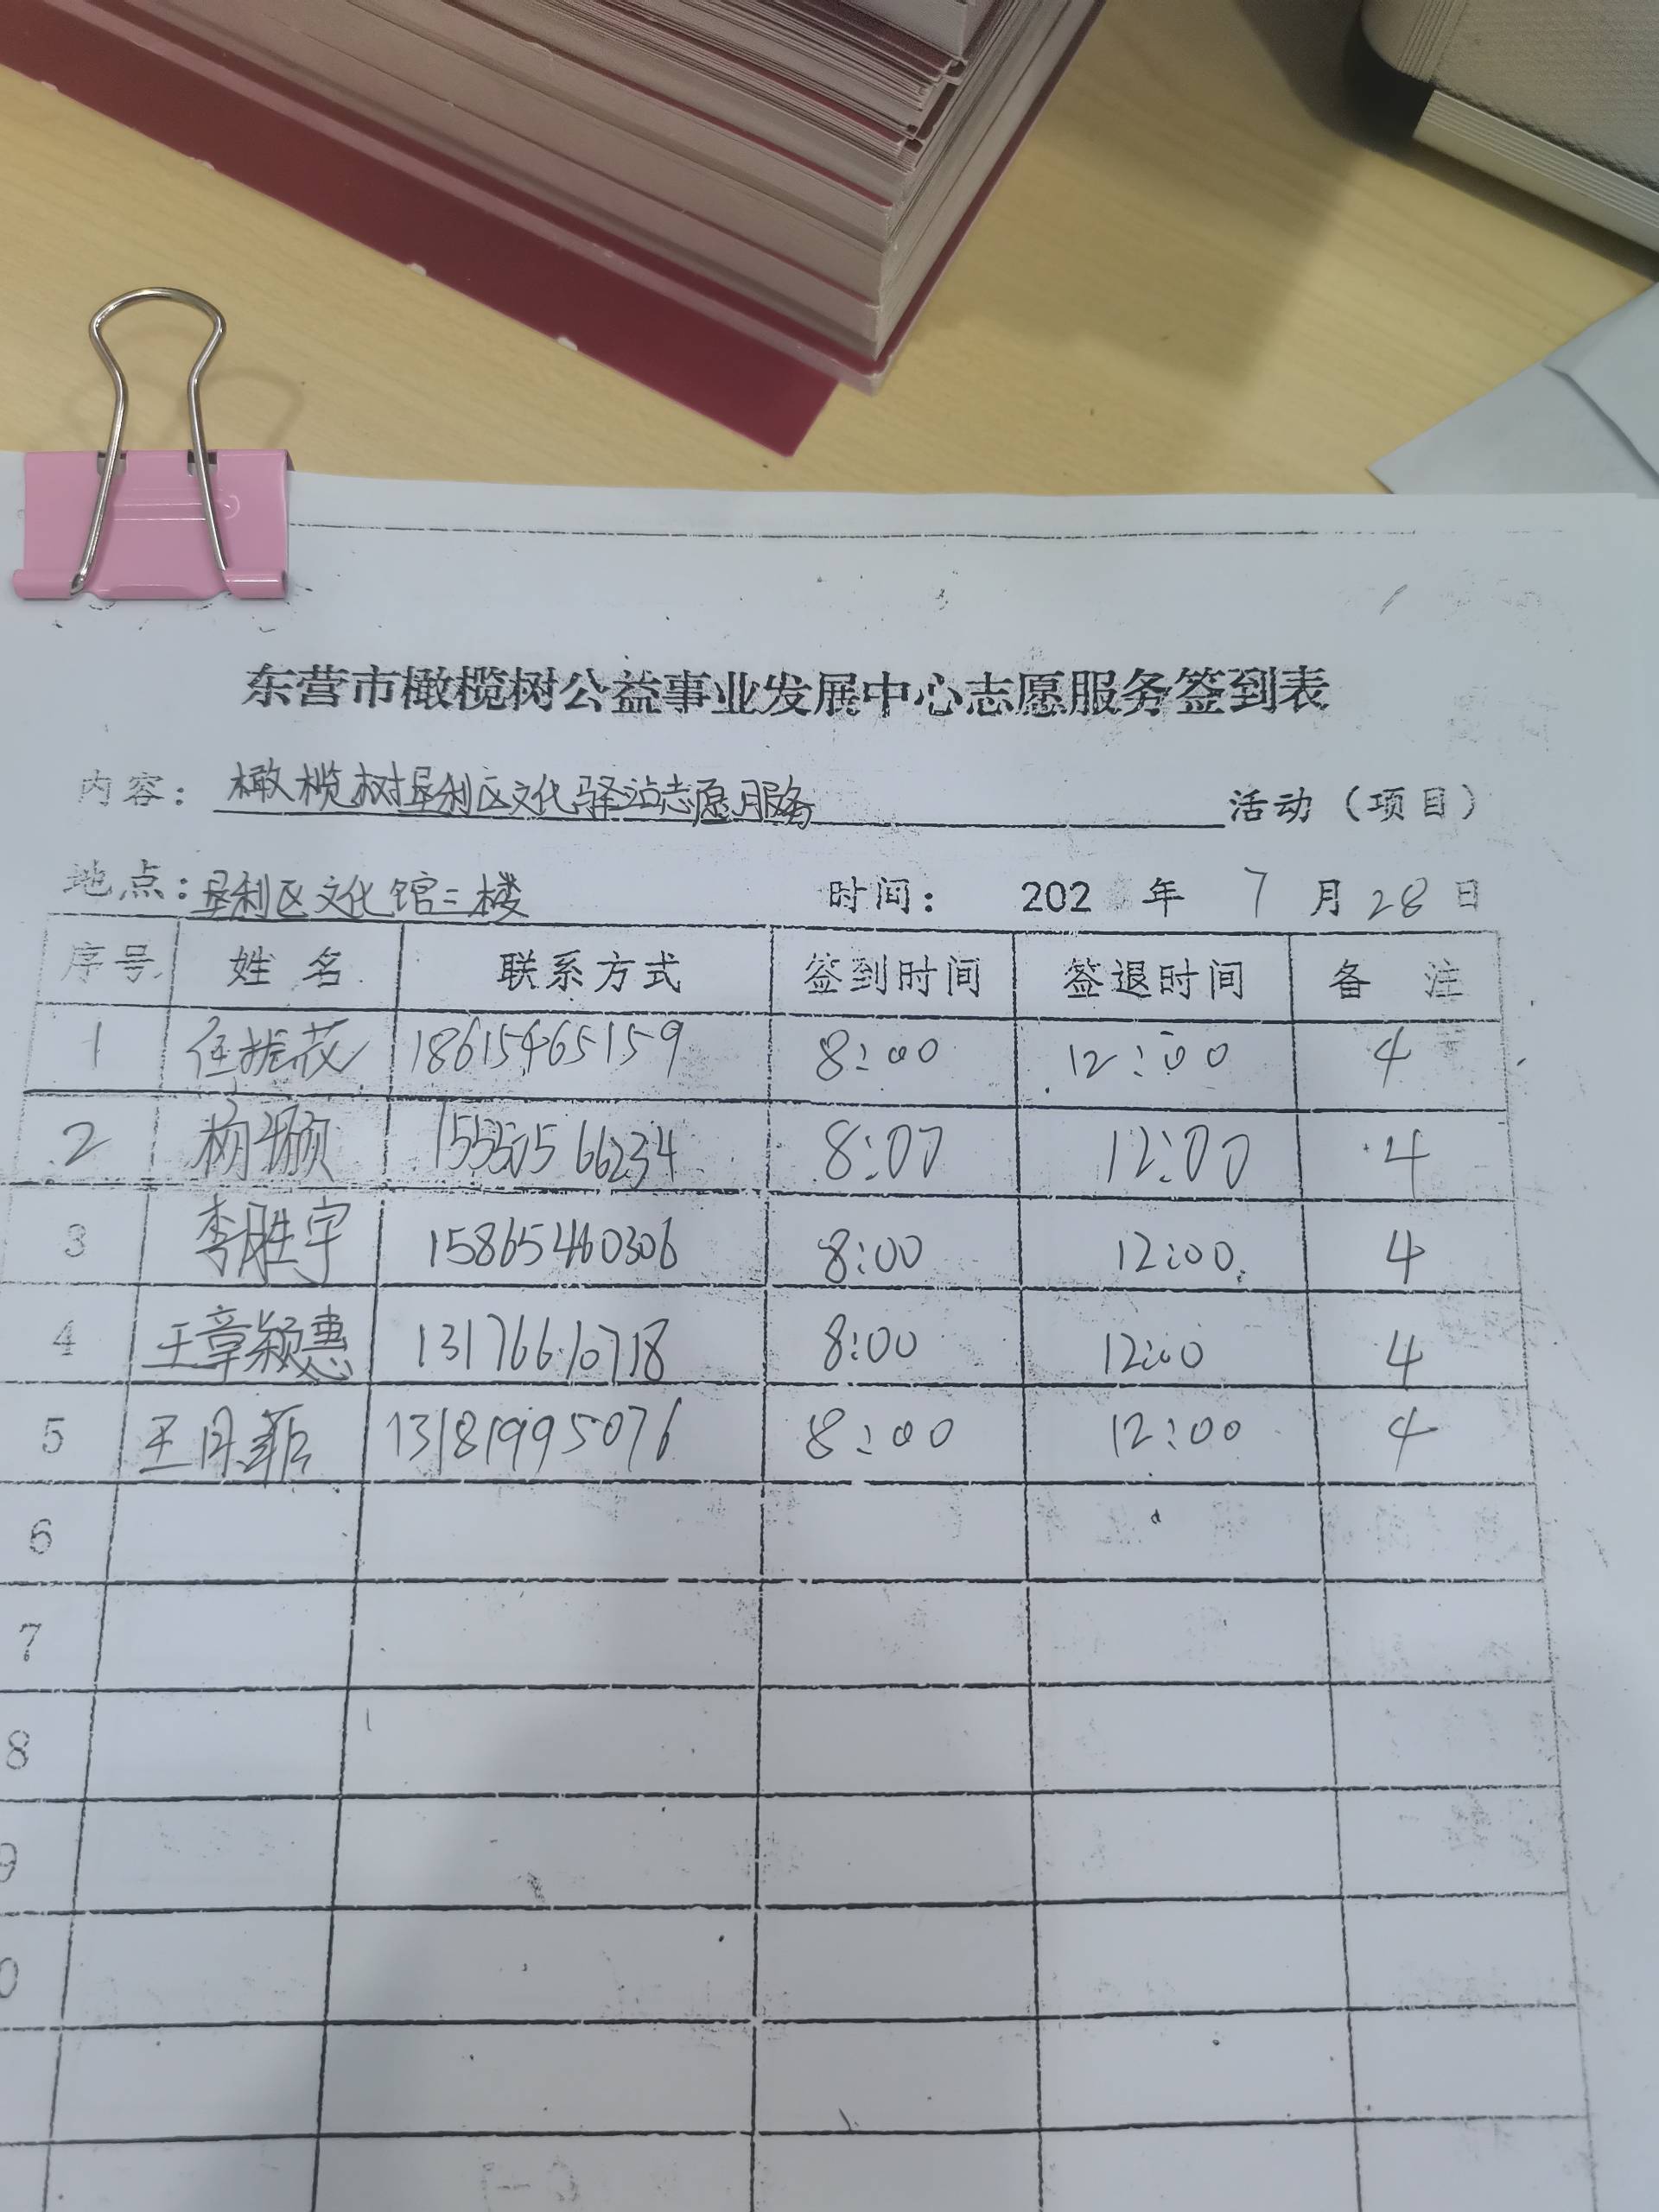 东营市橄榄树公益事业发展中心志愿服务签到表
内容：橄榄树垦利区文化驿站志愿服务 活动（项目）
地点：垦利区文化馆二楼 时间： 202 年 7 月 28 日
序号 姓名 联系方式 签到时间 签退时间 备注
1 任振花 18615465159 8:00 12:00 4
2 杨颀 8:00 12:00 4
3 李胜宇 15865460306 8:00 12:00 4
4 王章颖惠 13176610718 8:00 12:00 4
5 王月 13181995076 8:00 12:00 4
6
7
8
9
0